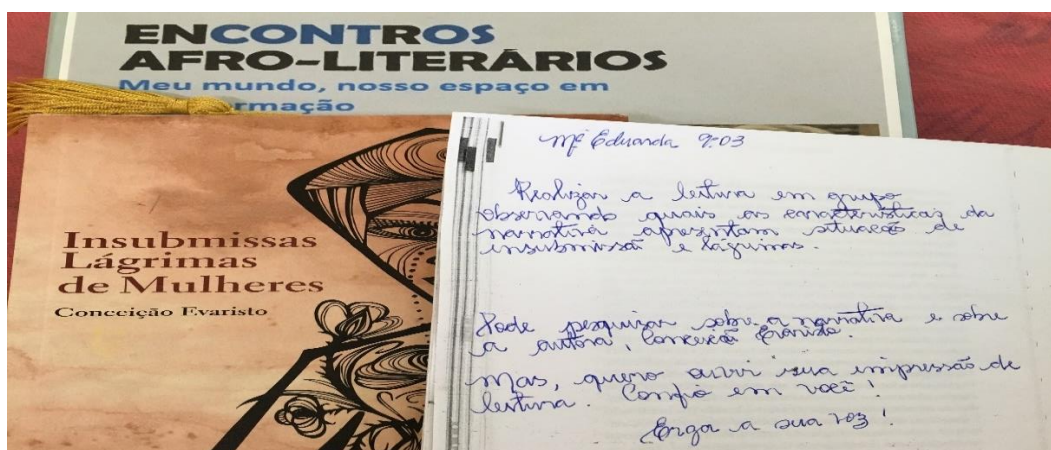 ENCONTROS
AFRO-LITERÁRIOS
Meu mundo, nosso espaço em
rmação
Insubmissas
Lágrimas
de Mulheres
Conceição Evaristo
Mª Eduarda 9:03
Realizar a leitura em grupo
observando quais as características da
narrativa apresentam situação de
insubmissão e lágrimas.
Pode pesquisar sobre a narrativa e sobre
a autora, Conceição Evaristo.
Mas, quero ouvir sua impressão de
leitura. Confio em você!
Erga a sua voz!